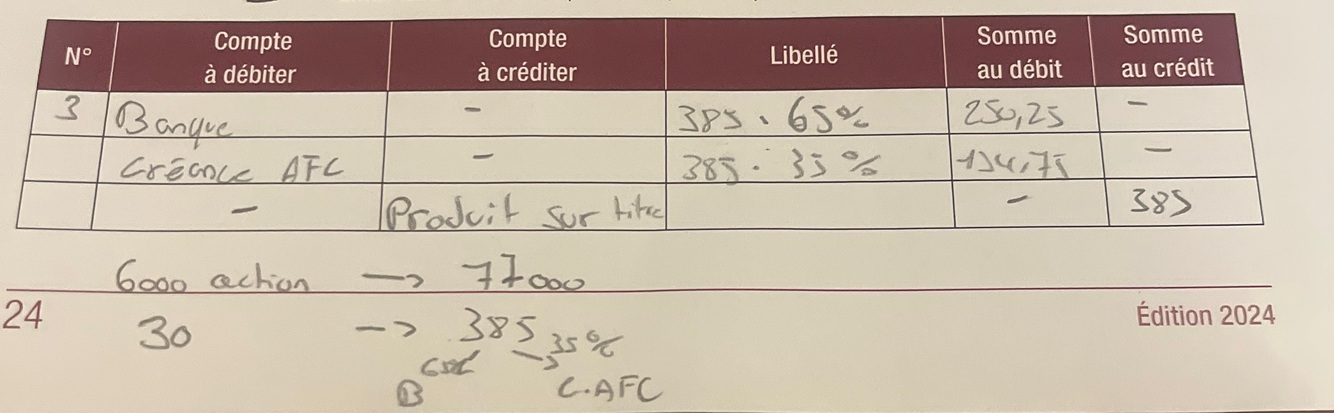 N° Compte à débiter Compte à créditer Libellé Somme au débit Somme au crédit
3 Banque - 385 · 65% 250,25 -
Créance AFC - 385 · 35% 134,75 -
- Produit sur titre - 385
6000 action -> 77000
24 Édition 2024
30 -> 385 35%
65% ->
B C.AFC